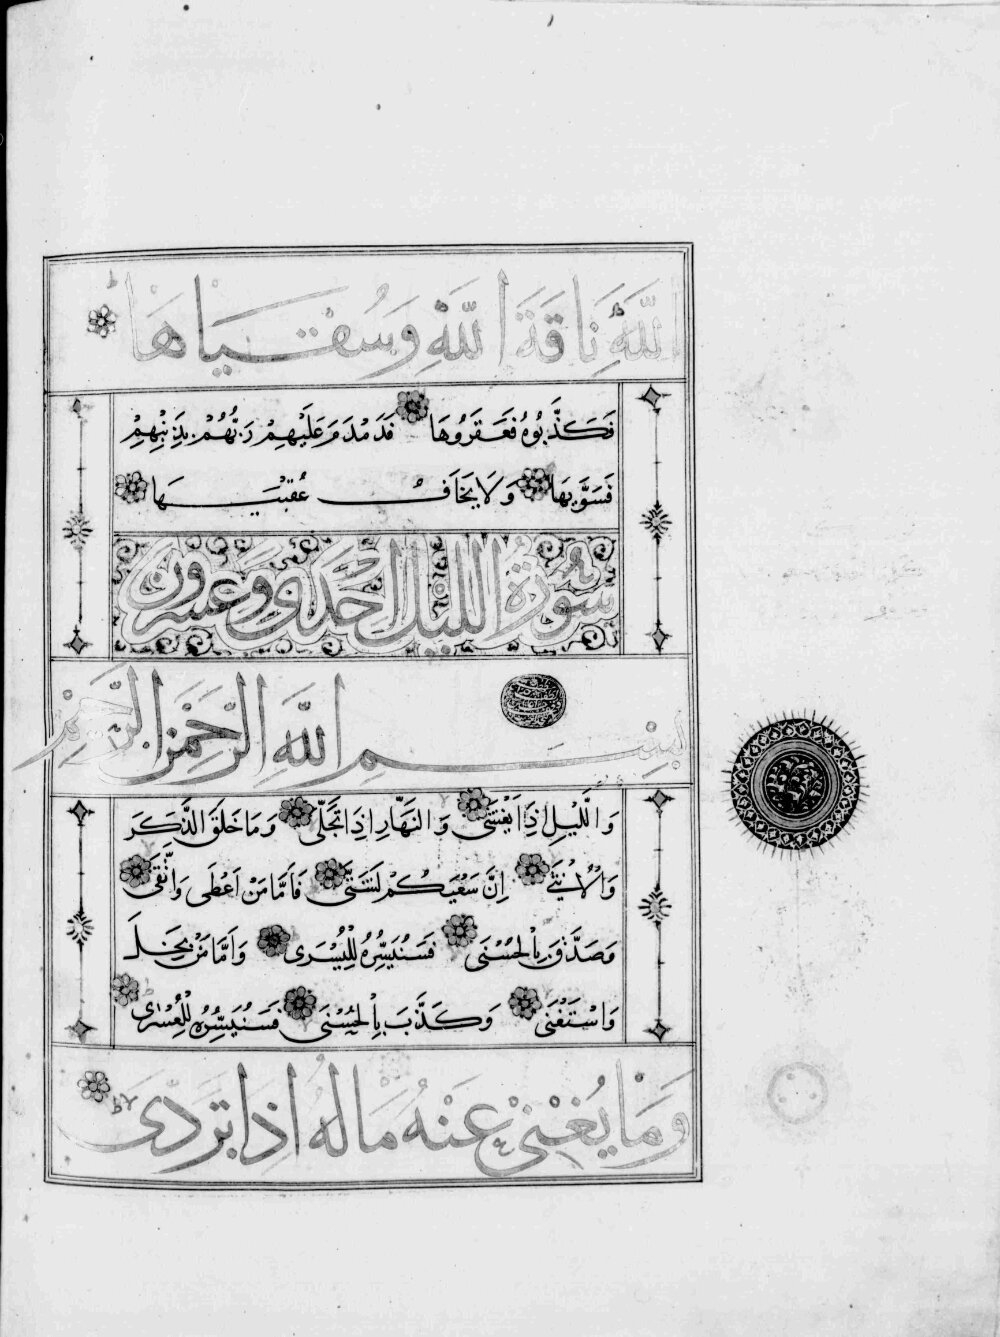 اللَّهِ نَاقَةَ اللَّهِ وَسُقْيَاهَا
فَكَذَّبُوهُ فَعَقَرُوهَا فَدَمْدَمَ عَلَيْهِمْ رَبُّهُمْ بِذَنْبِهِمْ
فَسَوَّيهَا وَلَا يَخَافُ عُقْبَيهَا
سورة الليل احدى وعشرون
بِسْمِ اللَّهِ الرَّحْمَنِ الرَّحِيمِ
وَاللَّيْلِ إِذَا يَغْشَى وَالنَّهَارِ إِذَا تَجَلَّى وَمَا خَلَقَ الذَّكَرَ
وَالْأُنْثَى إِنَّ سَعْيَكُمْ لَشَتَّى فَأَمَّا مَنْ أَعْطَى وَاتَّقَى
وَصَدَّقَ بِالْحُسْنَى فَسَنُيَسِّرُهُ لِلْيُسْرَى وَأَمَّا مَنْ بَخِلَ
وَاسْتَغْنَى وَكَذَّبَ بِالْحُسْنَى فَسَنُيَسِّرُهُ لِلْعُسْرَى
وَمَا يُغْنِي عَنْهُ مَالُهُ إِذَا تَرَدَّى